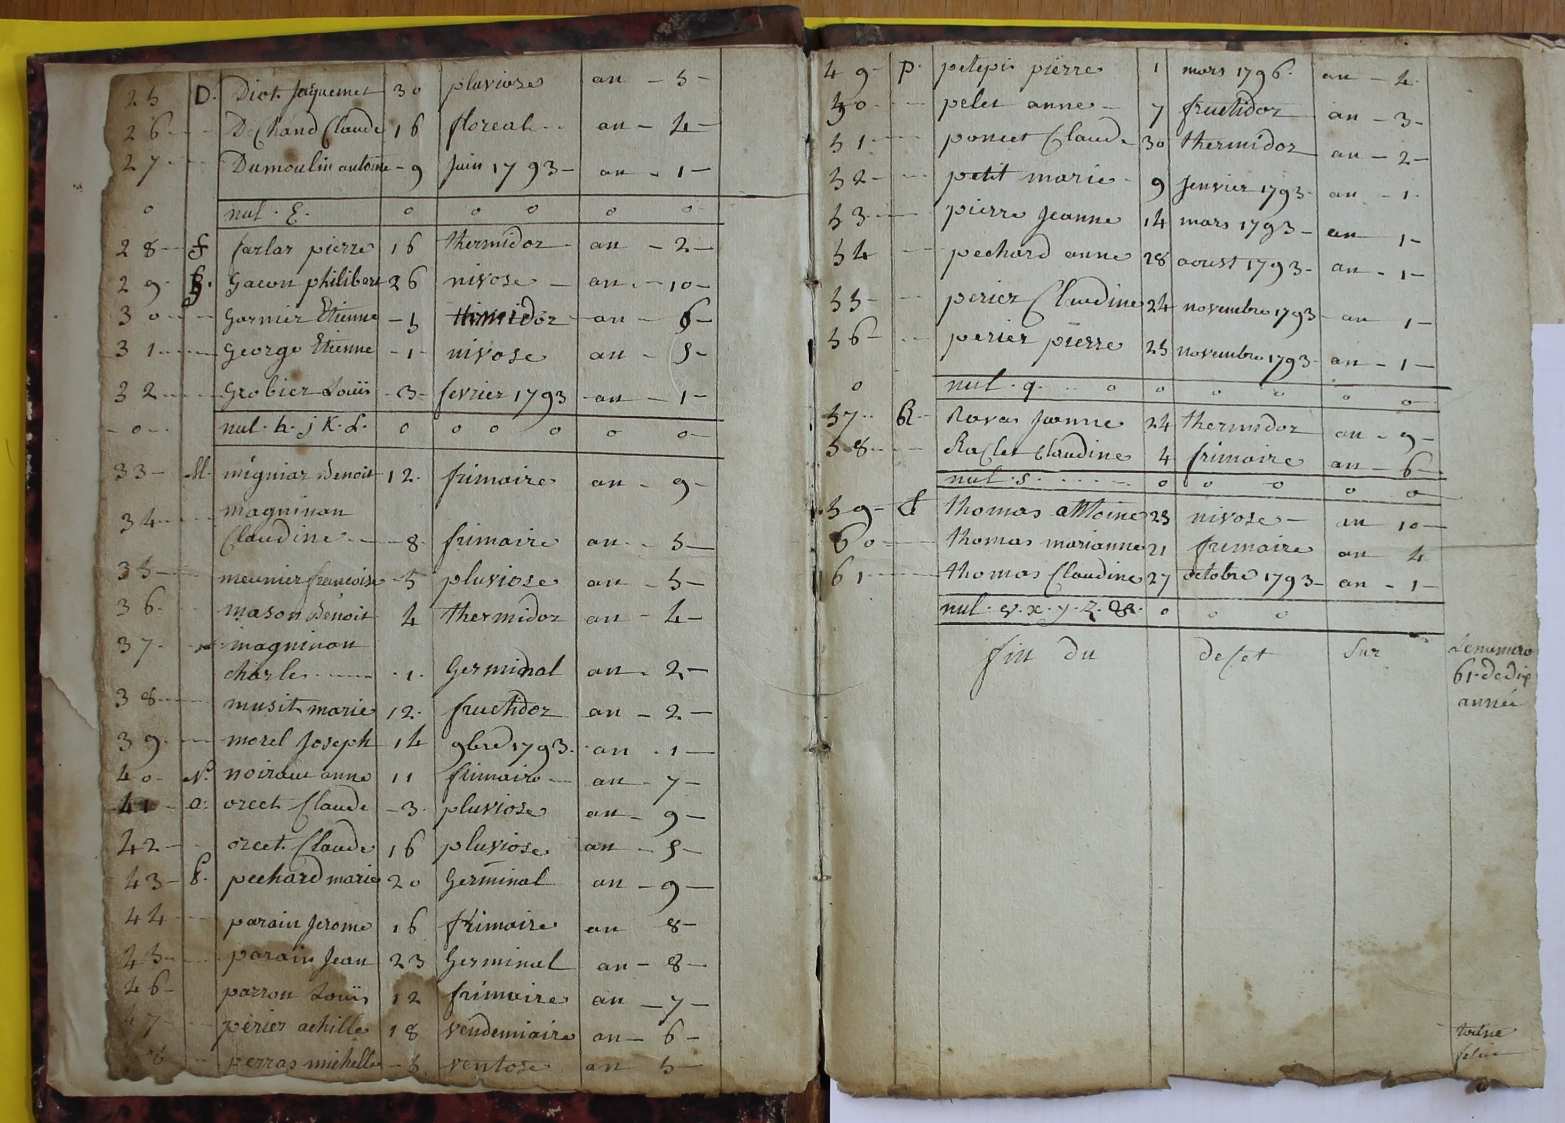 25 D. Diot Jaquemet 30 pluviose an - 5 -
26 Dechand Claude 16 floreal an - 4 -
27 Dumoulin antoine - 9 Juin 1793 - an - 1 -
0 nul . E. 0 0 0 0 0
28 f farlar pierre 16 thermidor an - 2 -
29 g. Gacon philibert 26 nivose - an - 10 -
30 Garnier Etienne - 5 thermidor an - 6 -
31 George Etienne - 1 - nivose an - 5 -
32 Grobier Louis - 3 - fevrier 1793 an - 1 -
0 nul . h . j K . L . 0 0 0 0 0 0
33 - M. migniar Benoit 12 . frimaire an - 9 -
34 magninon
Claudine - 8 . frimaire an - 5 -
35 meunier francoise - 5 pluviose an - 5 -
36 mason Benoit 4 thermidor an - 4 -
37 magninon
charle . 1 . Germinal an - 2 -
38 musit marie 12 . fructidor an - 2 -
39 morel Joseph 14 9bre 1793 . an . 1 -
40 N. noiraut anne 11 frimaire an - 7 -
41 o. orcet Claude - 3 . pluviose an - 9 -
42 orcet Claude 16 pluviose an - 5 -
43 p. pechard marie 20 Germinal an - 9 -
44 parain Jerome 16 frimaire an 8 -
45 parain Jean 23 Germinal an - 8 -
46 parron Louis 12 frimaire an - 7 -
47 périer achille 18 vendemiaire an - 6 -
48 perras michelle - 8 ventose an 5 -
49 - P. petepi pierre 1 mars 1796 . an - 4
50 pelet anne - 7 fructidor an - 3 -
51 poncet Claude 30 thermidor an - 2 -
52 petit marie - 9 Jenvier 1793 - an - 1 -
53 pierre Jeanne 14 mars 1793 - an 1 -
54 pechard anne 28 aoust 1793 - an - 1 -
55 perier Claudine 24 novembre 1793 - an 1 -
56 périer pierre 25 novembre 1793 - an - 1 -
0 nul . q . 0 0 0 0 0 0
57 R Ravas Jeanne 24 thermidor an - 9 -
58 Raclet Claudine 4 frimaire an - 6 -
nul . s . 0 0 0 0 0
59 - t thomas attoine 23 nivose - an 10 -
60 thomas marianne 21 frimaire an 4
61 thomas Claudine 27 octobre 1793 - an - 1 -
nul . v . x . y . z . & . 0 0 0
fin du decet sur Le numero
61 - de dix
année